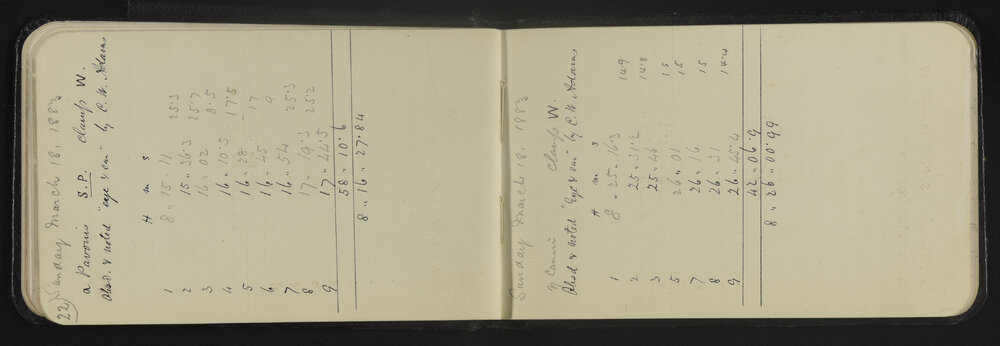 22) Sunday March 18. 1883
α Pavonis S.P. Clamp W.
Obsd. & noted "eye & ear" by C. W. Adams
H m s
1 8 " 15 " 11 25.3
2 15 " 36.3 25.7
3 16 " 02 8.5
4 16 " 10.5 17.5
5 16 " 28 17
6 16 " 45 9
7 16 " 54 25.3
8 17 " 19.3 25.2
9 17 " 44.5
58 " 10.6
8 " 16 " 27.84
Sunday March 18. 1883
η Canis Clamp W.
Obsd & noted "Eye & ear" by C. W. Adams
H m s
1 8 " 25 " 16.3 14.9
2 25 " 31.2 14.8
3 25 " 46 15
5 26 " 01 15
7 26 " 16 15
8 26 " 31 14.4
9 26 " 45.4
42 " 06.9
8 " 26 " 00.99